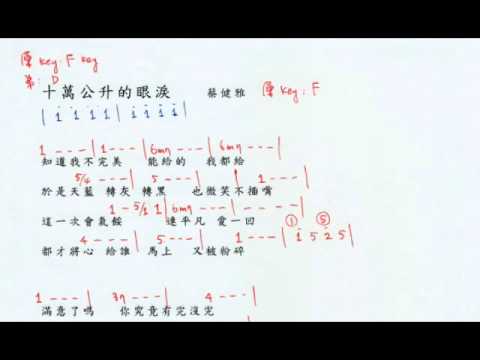 原 key: F key
弟: D
十萬公升的眼淚 蔡健雅 原 key: F
| i i i i | i i i i |
1 - - - | 1 - - - | 6m7 - - | 6m7 - - - |
知道我不完美 能給的 我都給
5/4 - - - | 4 - - - | 5 - - | 1 - - - |
於是天藍 轉灰 轉黑 也微笑不插嘴
1 - 5/1 1 | 6m7 - - - | ① ⑤
這一次會氣餒 連平凡 愛一回
4 - - - | 5 - - - | 1 - - - | i 5 2 5 |
都才將心 給誰 馬上 又被粉碎
1 - - - | 37 - - - | 4 - - - |
滿意了嗎 你究竟有完沒完